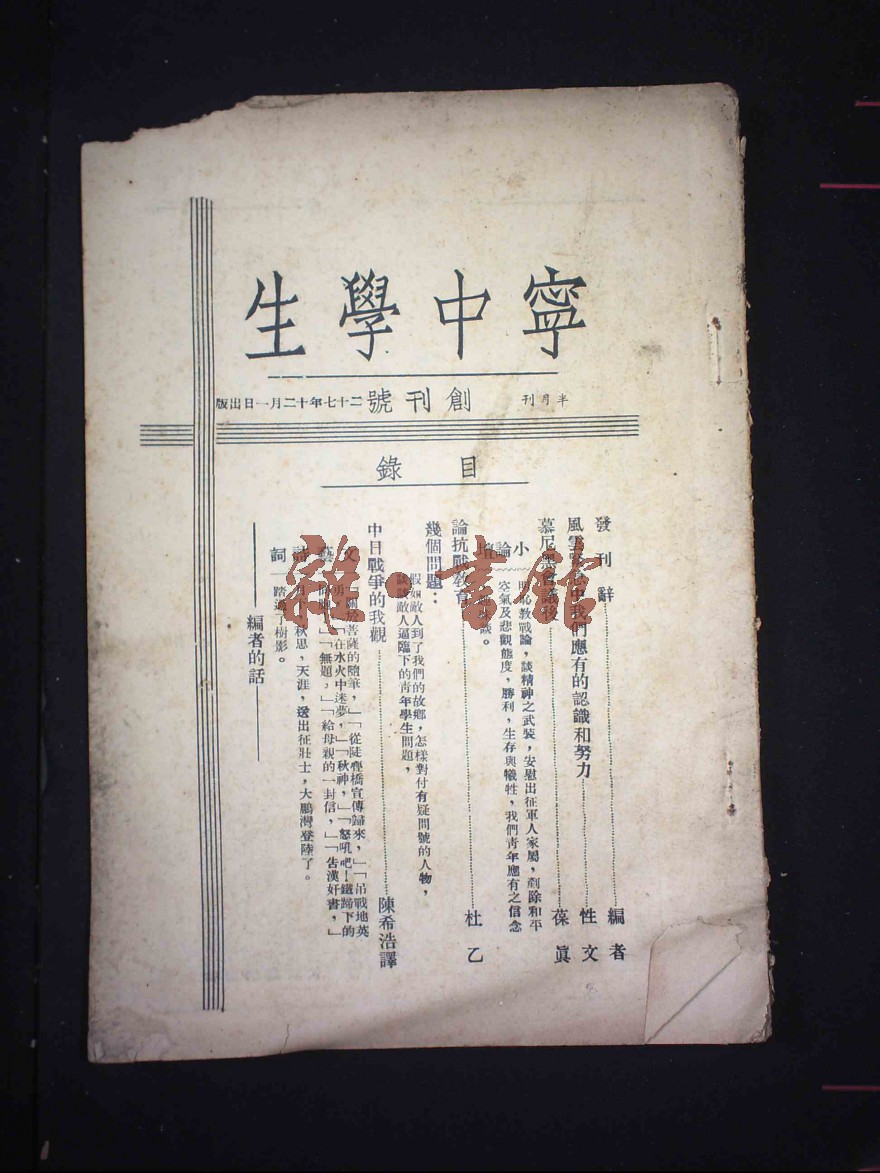 寧中學生
半月刊 創刊號 二十七年十二月一日出版
目錄
發刊辭 編者
風雲 中我們應有的認識和努力 性文
慕尼黑會議後 葆眞
小論壇
明恥教戰論，談精神之武裝，安慰出征軍人家屬，剷除和平
空氣及悲觀態度，勝利，生存與犧牲，我們靑年應有之信念
談。
論抗戰教育 杜乙
幾個問題：
假如敵人到了我們的故鄉，怎樣對付有疑問號的人物，
談談敵人逼臨下的靑年學生問題，
中日戰爭的我觀 陳希浩譯
文藝
「關於菩薩的隨筆，」「從陡亹橋宣傳歸來，」「吊戰地英
勇，」「在水火中迷夢，」「秋神，」「怒吼吧！鐵蹄下的
「無題，」「給母親的一封信，」「告漢奸書，」
詩
月下，秋思，天涯，送出征壯士，大鵬灣登陸了。
詞
踏過了樹影。
編者的話
雜·書館